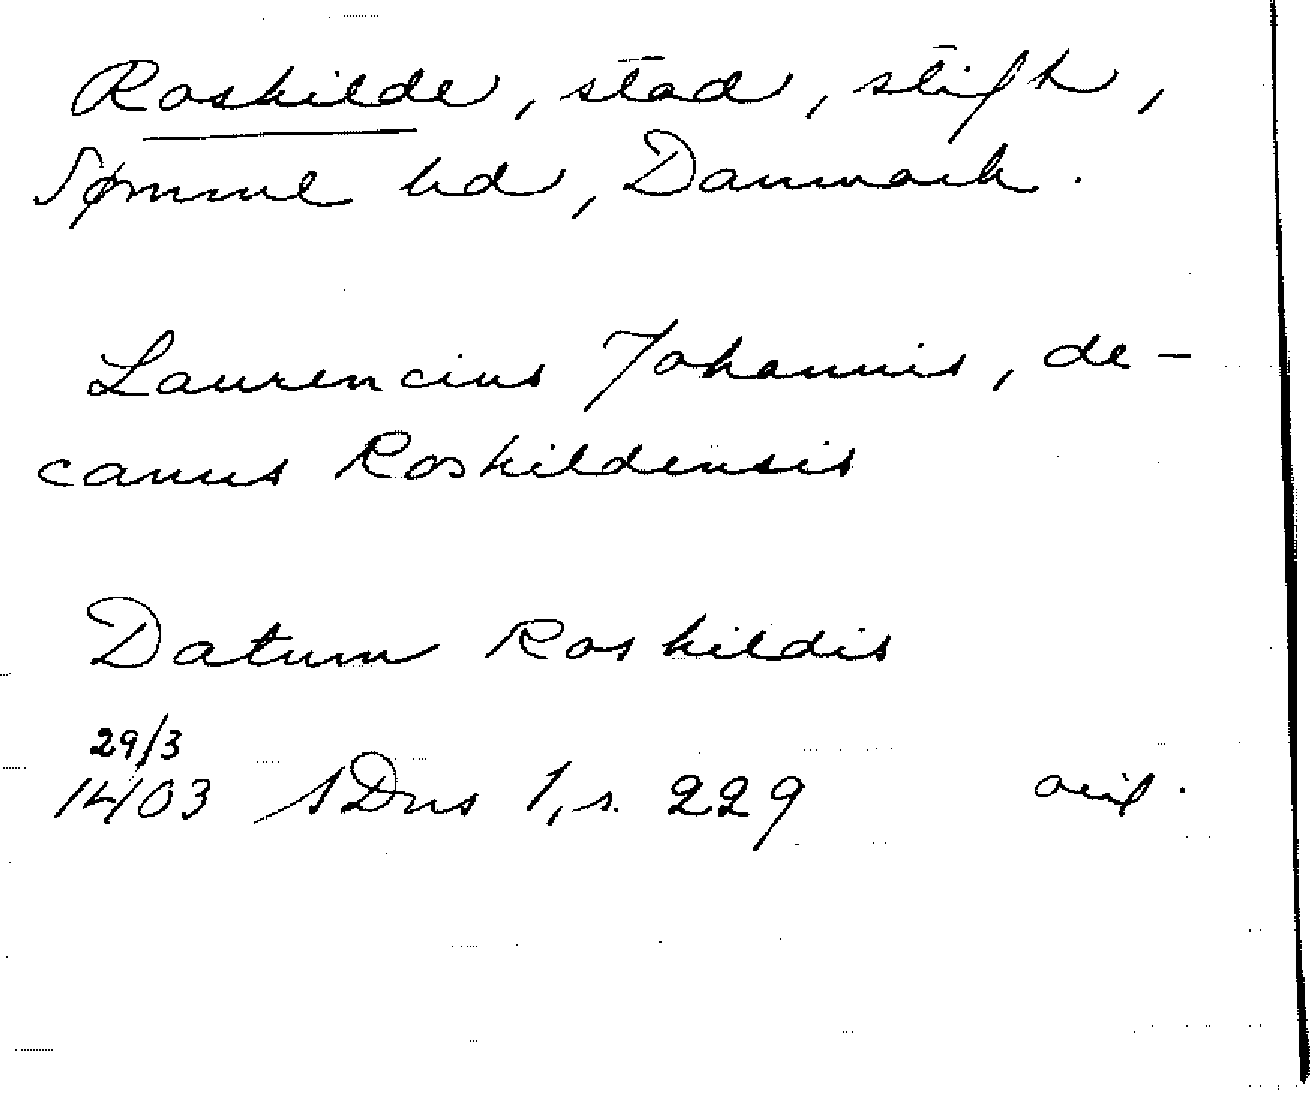 Roskilde, stad, stift,
Sømme hd, Danmark.
Laurencius Johannis, de-
canus Roskildensis
Datum Roskildis
29/3
1403 SDns 1, s. 229 orig.